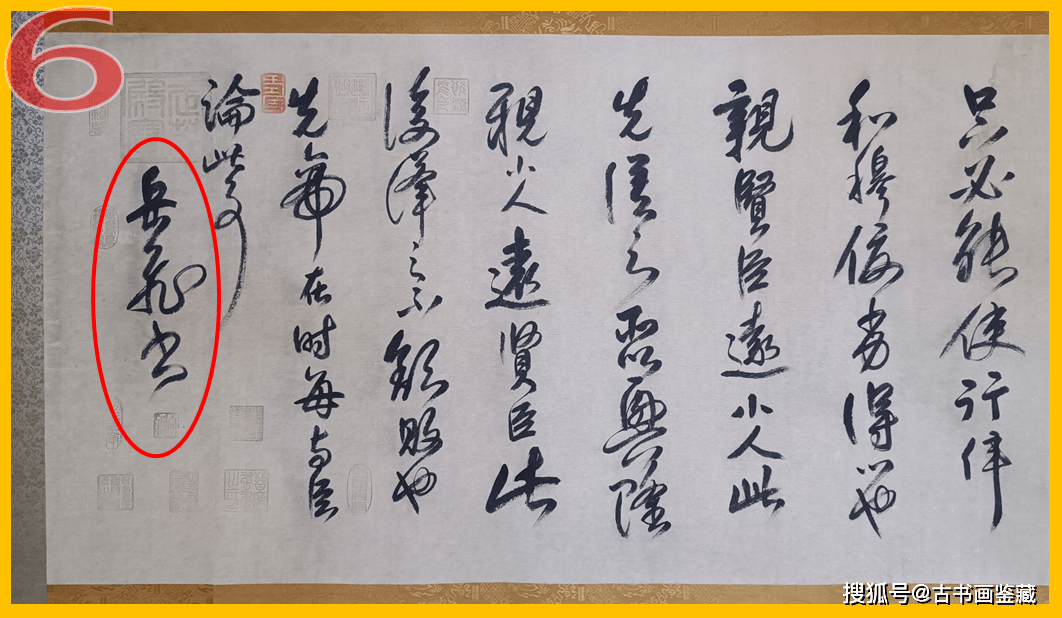 6
必能使行陣
和穆優劣得所也
親賢臣遠小人此
先漢之所以興隆
親小人遠賢臣此
後漢之所以頹敗也
先帝在時每與臣
論此事
岳飛書
搜狐号@古书画鉴藏